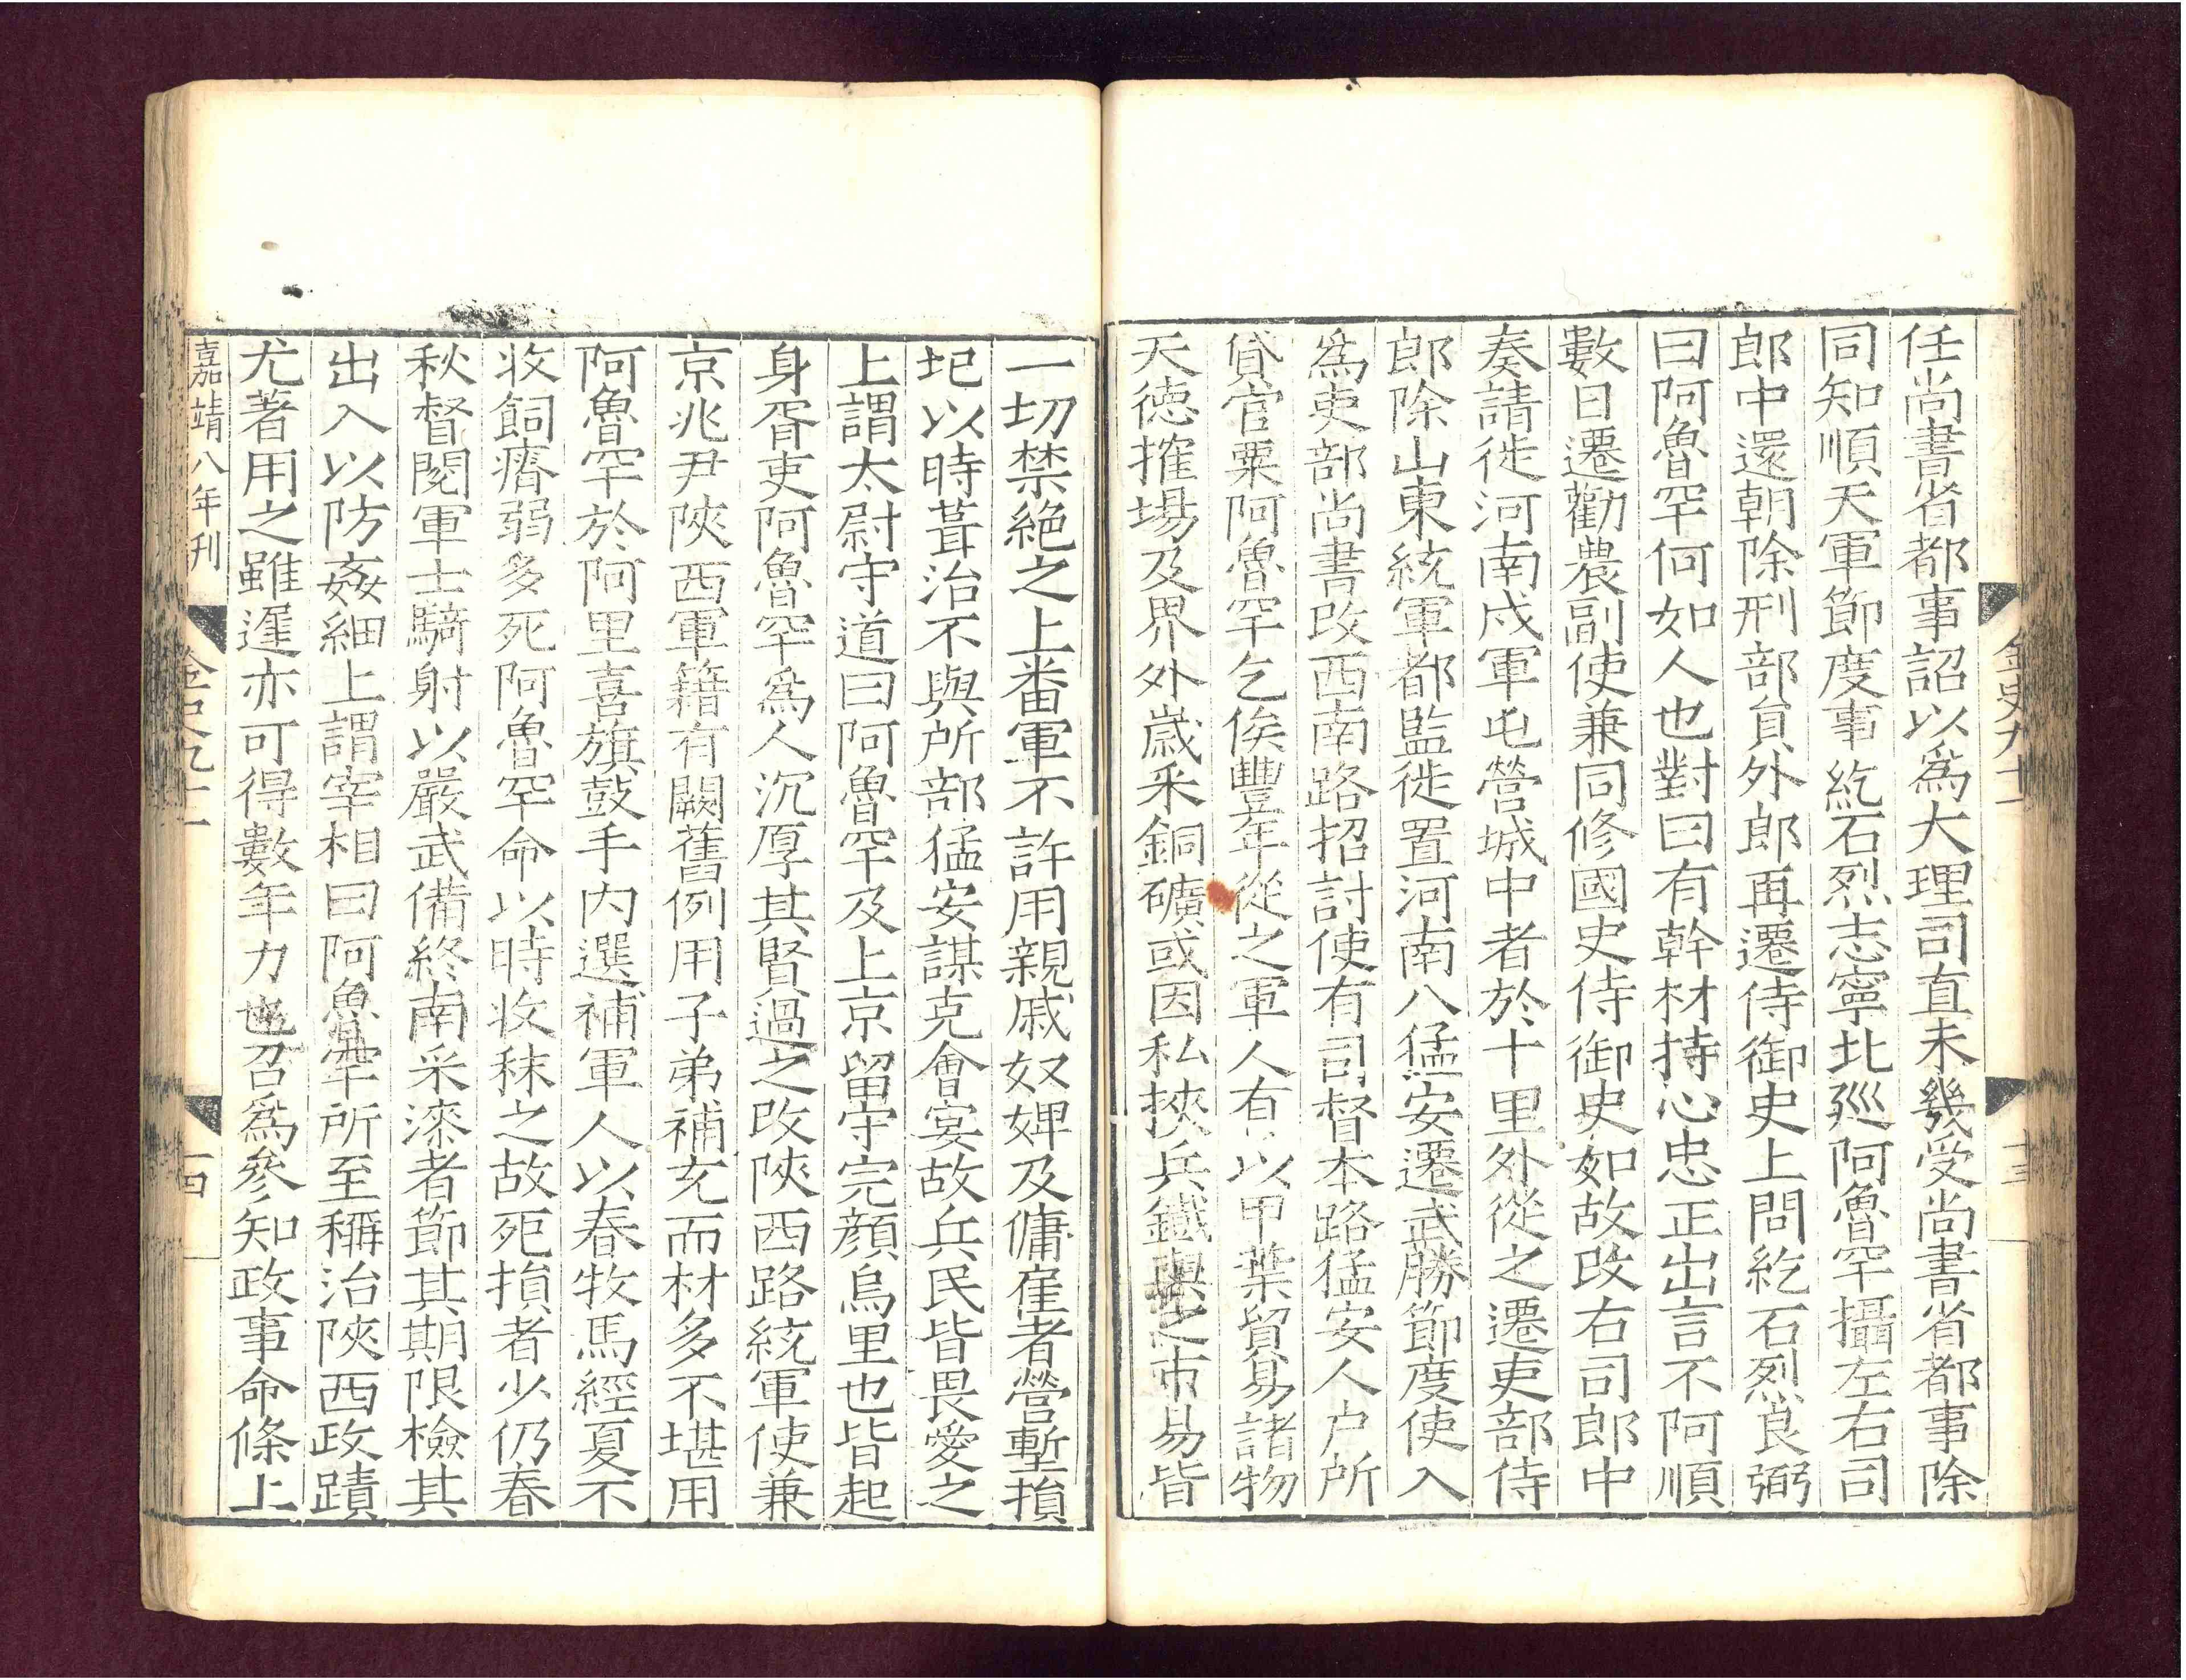 任尚書省都事詔以爲大理司直未幾受尚書省都事除
同知順天軍節度事紇石烈志寧北廵阿魯罕攝左右司
郎中還朝除刑部員外郎再遷侍御史上問紇石烈良弼
曰阿魯罕何如人也對曰有幹材持心忠正出言不阿順
數日遷勸農副使兼同修國史侍御史如故改右司郎中
奏請徙河南戍軍屯營城中者於十里外從之遷吏部侍
郎除山東統軍都監徙置河南八猛安遷武勝節度使入
爲吏部尚書改西南路招討使有司督本路猛安人户所
貸官粟阿魯罕乞俟豐年從之軍人有以甲葉貿易諸物
天徳搉場及界外歲釆銅礦或因私挾兵鐵與之市易皆
金史九十一
十三
一切禁絶之上番軍不許用親戚奴婢及傭雇者營塹損
圮以時葺治不與所部猛安謀克會宴故兵民皆畏愛之
上謂太尉守道曰阿魯罕及上京留守完顔烏里也皆起
身胥吏阿魯罕爲人沉厚其賢過之改陜西路統軍使兼
京兆尹陜西軍籍有闕舊例用子弟補充而材多不堪用
阿魯罕於阿里喜旗鼓手内選補軍人以春牧馬經夏不
收飼瘠弱多死阿魯罕命以時收秣之故死損者少仍春
秋督閱軍士騎射以嚴武備終南采漆者節其期限檢其
出入以防姦細上謂宰相曰阿魯罕所至稱治陜西政蹟
尤著用之雖遲亦可得數年力也召爲參知政事命條上
嘉靖八年刊
金史九十一
十四